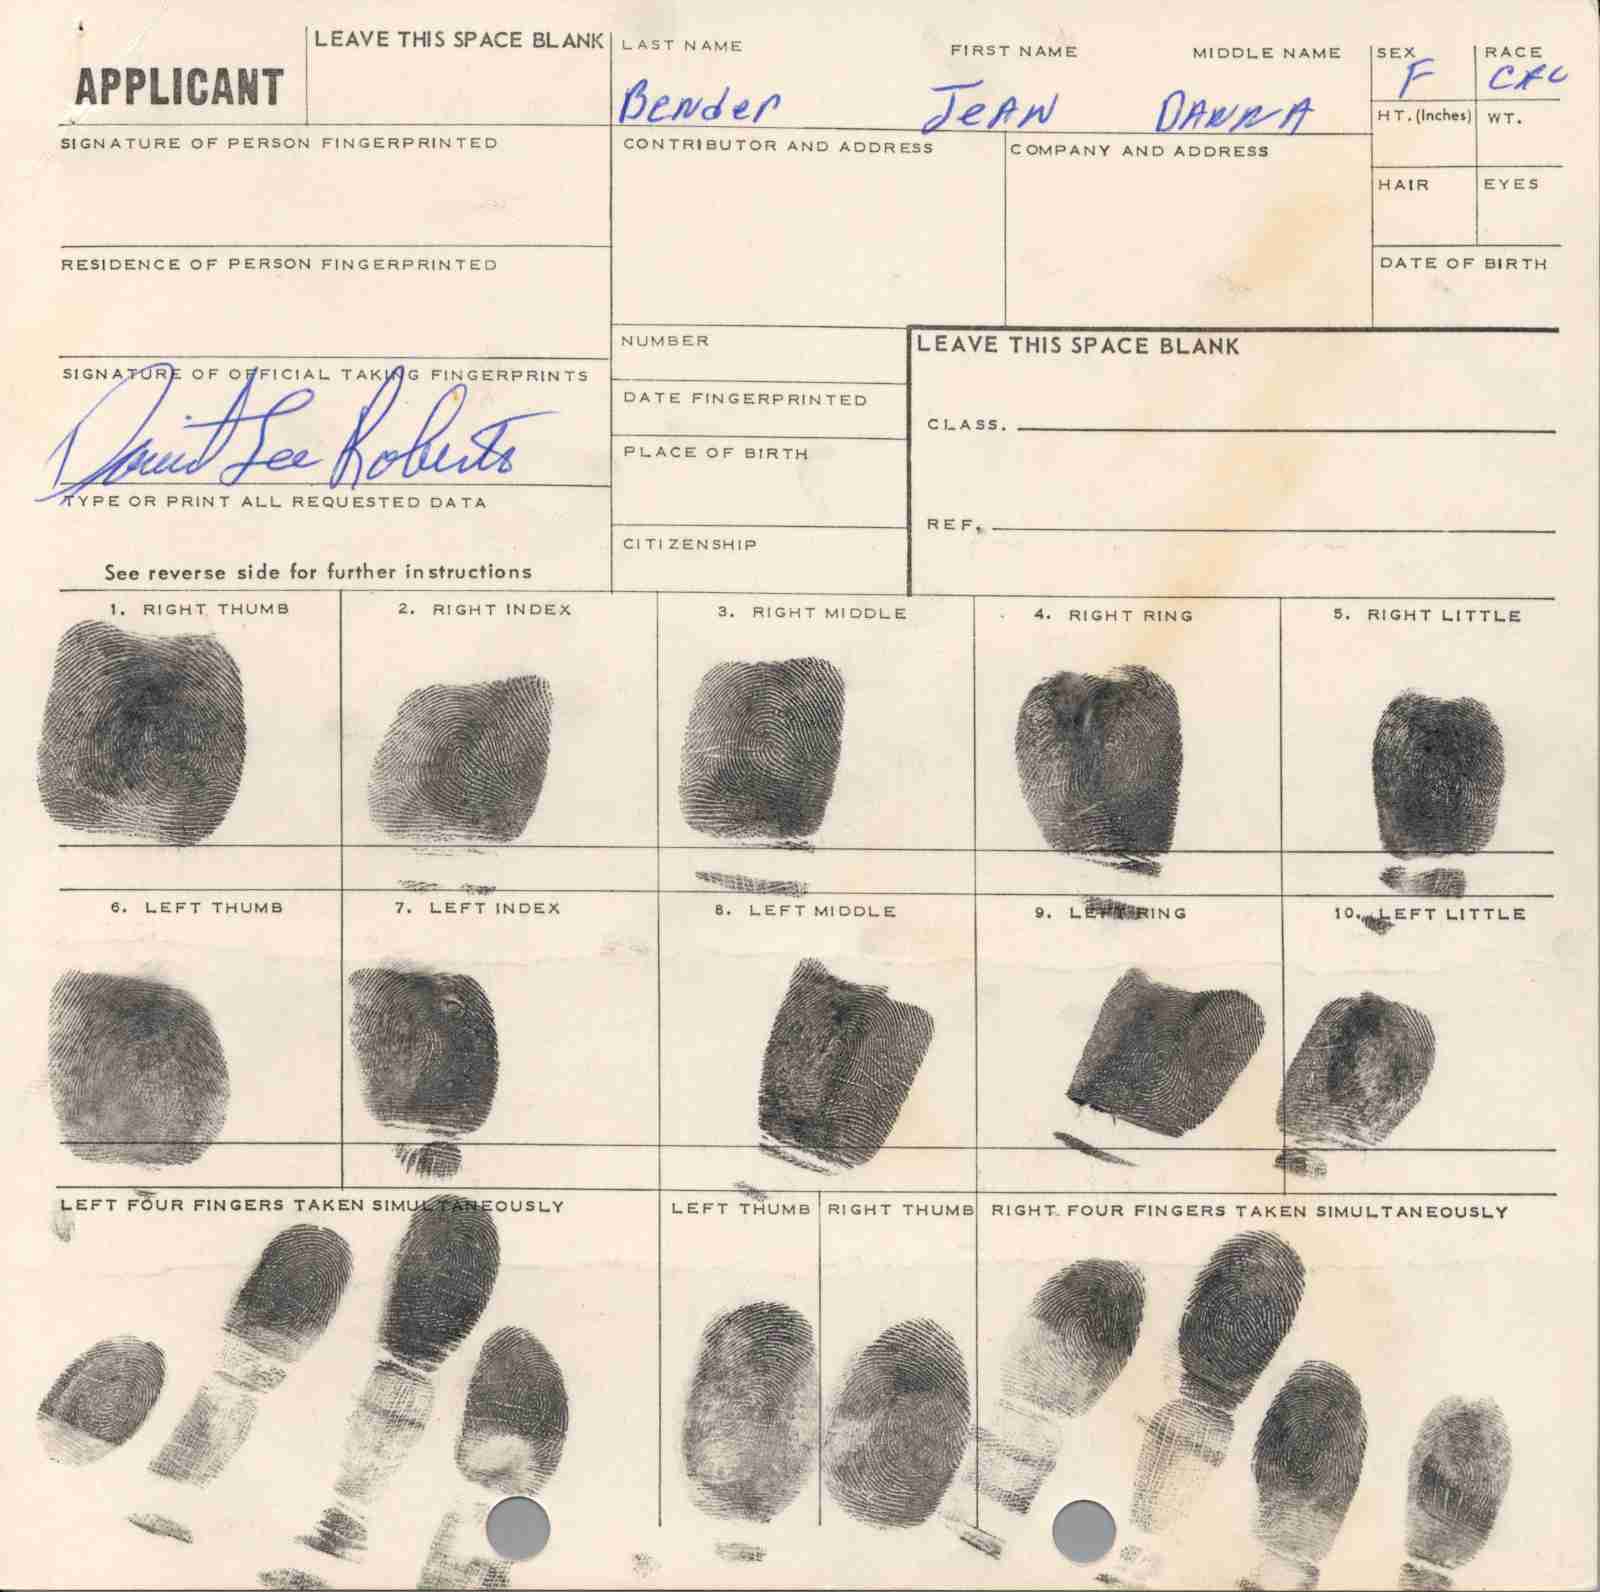 APPLICANT
LEAVE THIS SPACE BLANK
LAST NAME FIRST NAME MIDDLE NAME
Bender JeAN DANNA
SEX
F
RACE
CAU
HT. (Inches) WT.
SIGNATURE OF PERSON FINGERPRINTED
CONTRIBUTOR AND ADDRESS
COMPANY AND ADDRESS
HAIR EYES
RESIDENCE OF PERSON FINGERPRINTED
DATE OF BIRTH
NUMBER
LEAVE THIS SPACE BLANK
SIGNATURE OF OFFICIAL TAKING FINGERPRINTS
David Lee Roberts
DATE FINGERPRINTED
CLASS.
PLACE OF BIRTH
TYPE OR PRINT ALL REQUESTED DATA
REF.
CITIZENSHIP
See reverse side for further instructions
1. RIGHT THUMB 2. RIGHT INDEX 3. RIGHT MIDDLE 4. RIGHT RING 5. RIGHT LITTLE
6. LEFT THUMB 7. LEFT INDEX 8. LEFT MIDDLE 9. LEFT RING 10. LEFT LITTLE
LEFT FOUR FINGERS TAKEN SIMULTANEOUSLY LEFT THUMB RIGHT THUMB RIGHT FOUR FINGERS TAKEN SIMULTANEOUSLY